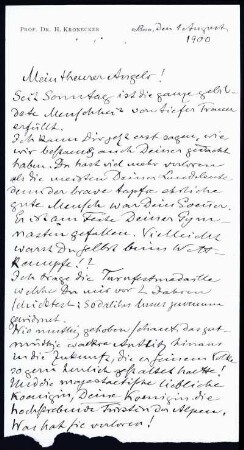 PROF. DR. H. KRONECKER
Bern, den 1 August,
1900
Mein theurer Angelo!
Seit Sonntag ist die ganze gebil-
dete Menschheit von tiefer Trauer
erfüllt.
Ich kann Dir jetzt erst sagen, wie
wir beständig auch Deiner gedacht
haben. Du hast viel mehr verloren
als die meisten Deiner Landsleute
denn der brave tapfre ehrliche
gute Mensch war Dein Goenner.
Er ist am Feste Deiner Gym-
nasten gefallen. Vielleicht
warst Du selbst beim Wett-
kampfe!?
Ich trage die Turnfestmedaille
welche Du mir vor 2 Jahren
schicktest:
gewidmet.
Wie muthig, gehoben schaut das gut-
muthige wackre Antlitz hinaus
in die Zukunft, die er seinem Volke
so gern herrlich gestaltet haette!
Und die majestaetische liebliche
Koenigin, Deine Koenigin die
hochstrebende Fürstin der Alpen,
Was hat sie verloren!